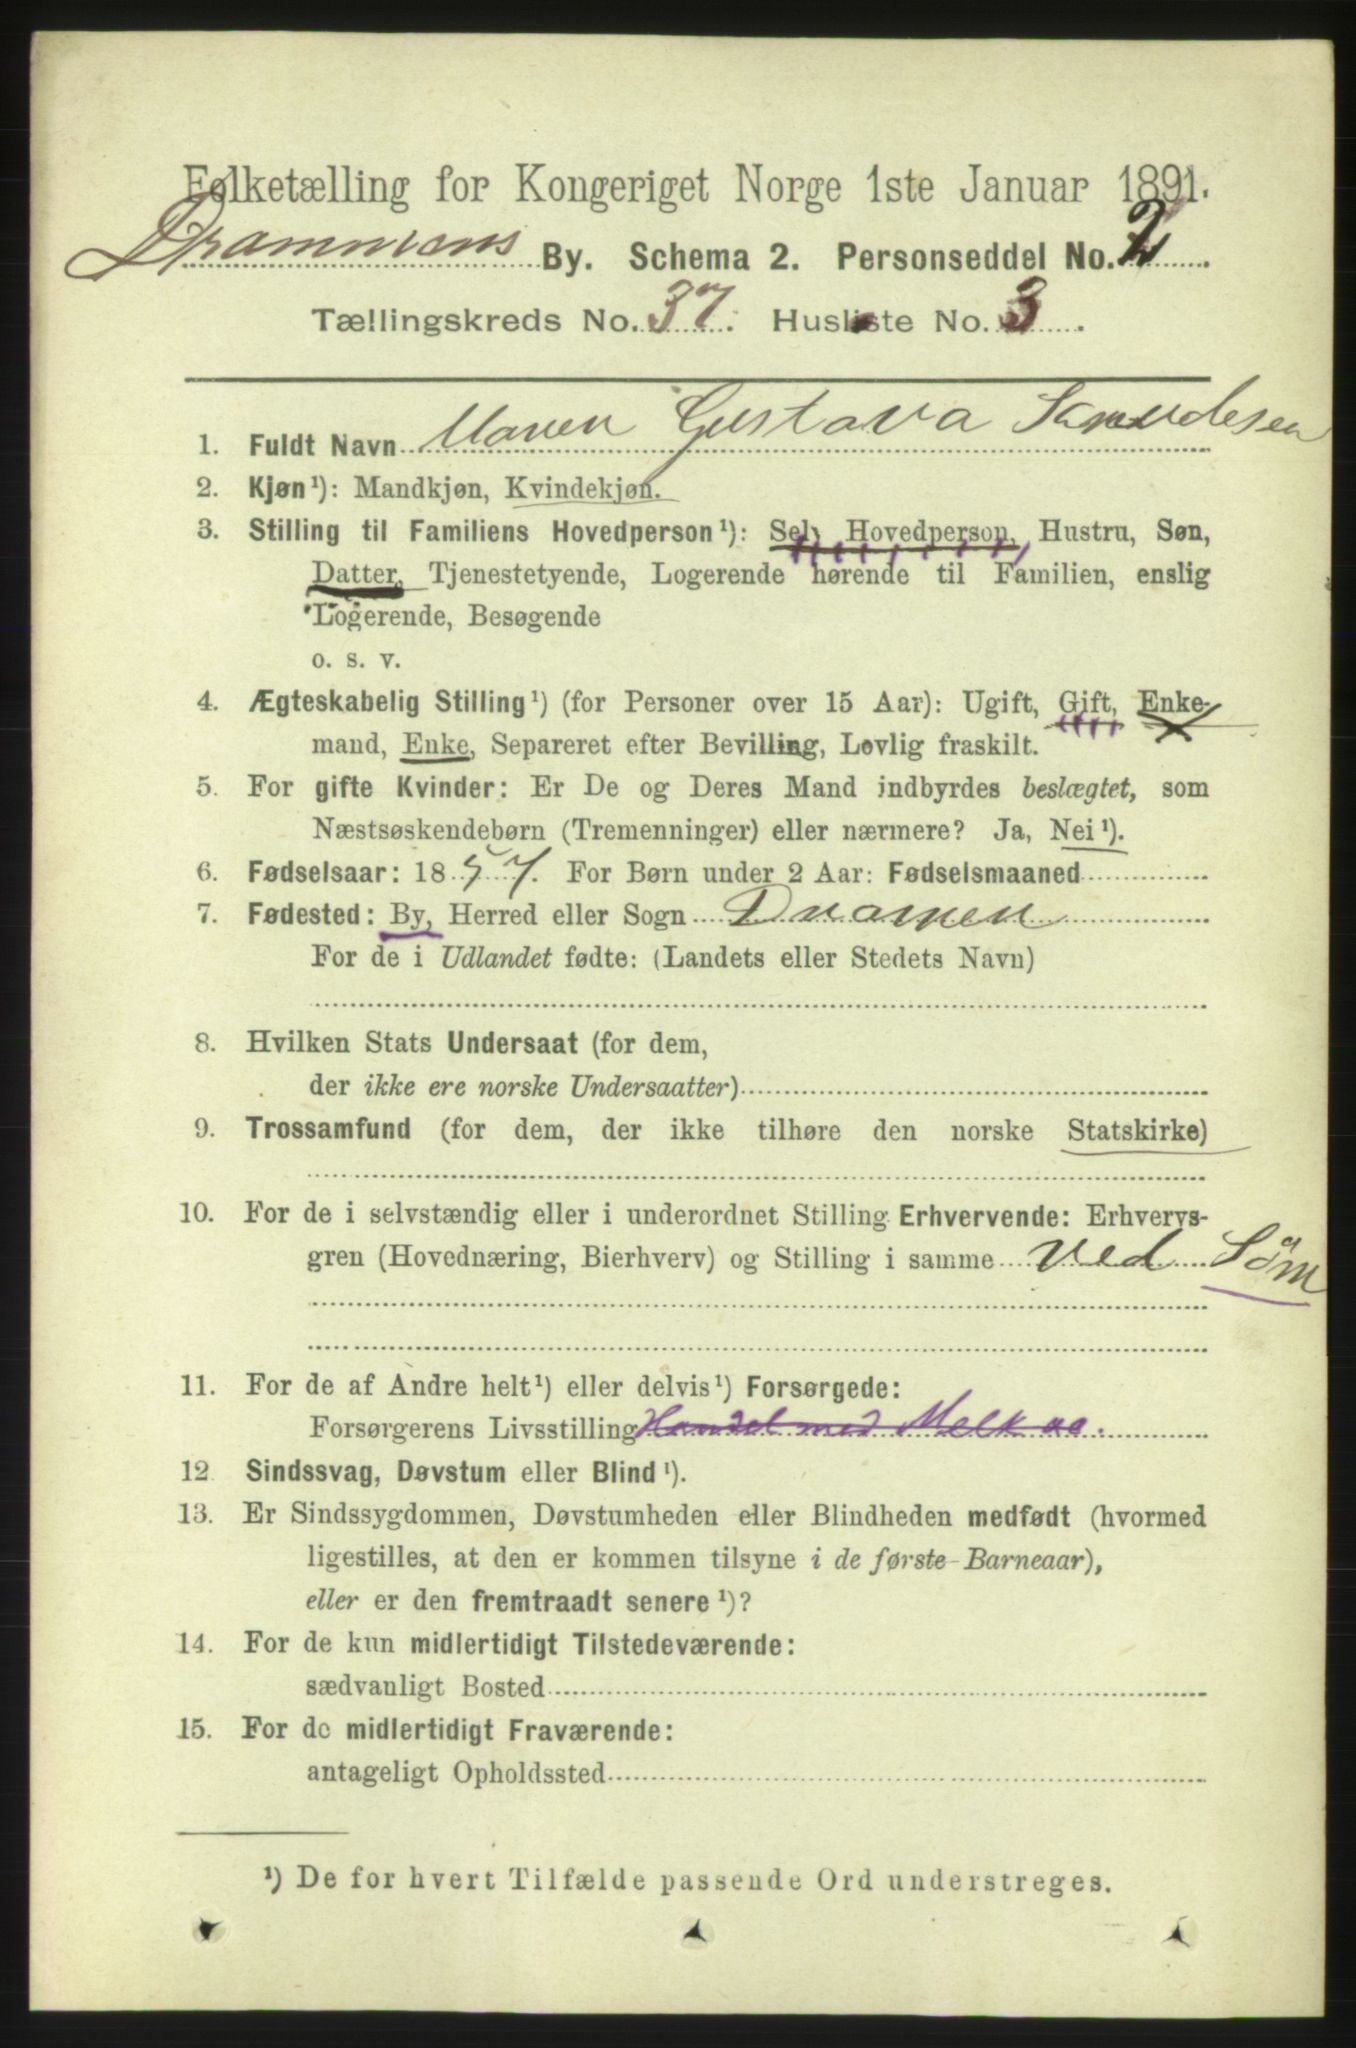 Folketælling for Kongeriget Norge 1ste Januar 1891.
Drammens By. Schema 2. Personseddel No. 2.
Tællingskreds No. 37. Husliste No. 3.
1. Fuldt Navn Maren Gustava
2. Kjøn¹): Mandkjøn, Kvindekjøn.
3. Stilling til Familiens Hovedperson¹): Selv Hovedperson, Hustru, Søn,
Datter, Tjenestetyende, Logerende hørende til Familien, enslig
Logerende, Besøgende
o. s. v.
4. Ægteskabelig Stilling¹) (for Personer over 15 Aar): Ugift, Gift, Enke-
mand, Enke, Separeret efter Bevilling, Lovlig fraskilt.
5. For gifte Kvinder: Er De og Deres Mand indbyrdes beslægtet, som
Næstsøskendebørn (Tremenninger) eller nærmere? Ja, Nei¹).
6. Fødselsaar: 1857. For Børn under 2 Aar: Fødselsmaaned
7. Fødested: By, Herred eller Sogn Dramen
For de i Udlandet fødte: (Landets eller Stedets Navn)
8. Hvilken Stats Undersaat (for dem,
der ikke ere norske Undersaatter)
9. Trossamfund (for dem, der ikke tilhøre den norske Statskirke)
10. For de i selvstændig eller i underordnet Stilling Erhvervende: Erhvervs-
gren (Hovednæring, Bierhverv) og Stilling i samme ved Söm
11. For de af Andre helt¹) eller delvis¹) Forsørgede:
Forsørgerens Livsstilling Handel med Melk
12 Sindssvag, Døvstum eller Blind¹).
13. Er Sindssygdommen, Døvstumheden eller Blindheden medfødt (hvormed
ligestilles, at den er kommen tilsyne i de første Barneaar),
eller er den fremtraadt senere¹)?
14. For de kun midlertidigt Tilstedeværende:
sædvanligt Bosted
15. For de midlertidigt Fraværende:
antageligt Opholdssted
¹) De for hvert Tilfælde passende Ord understreges.